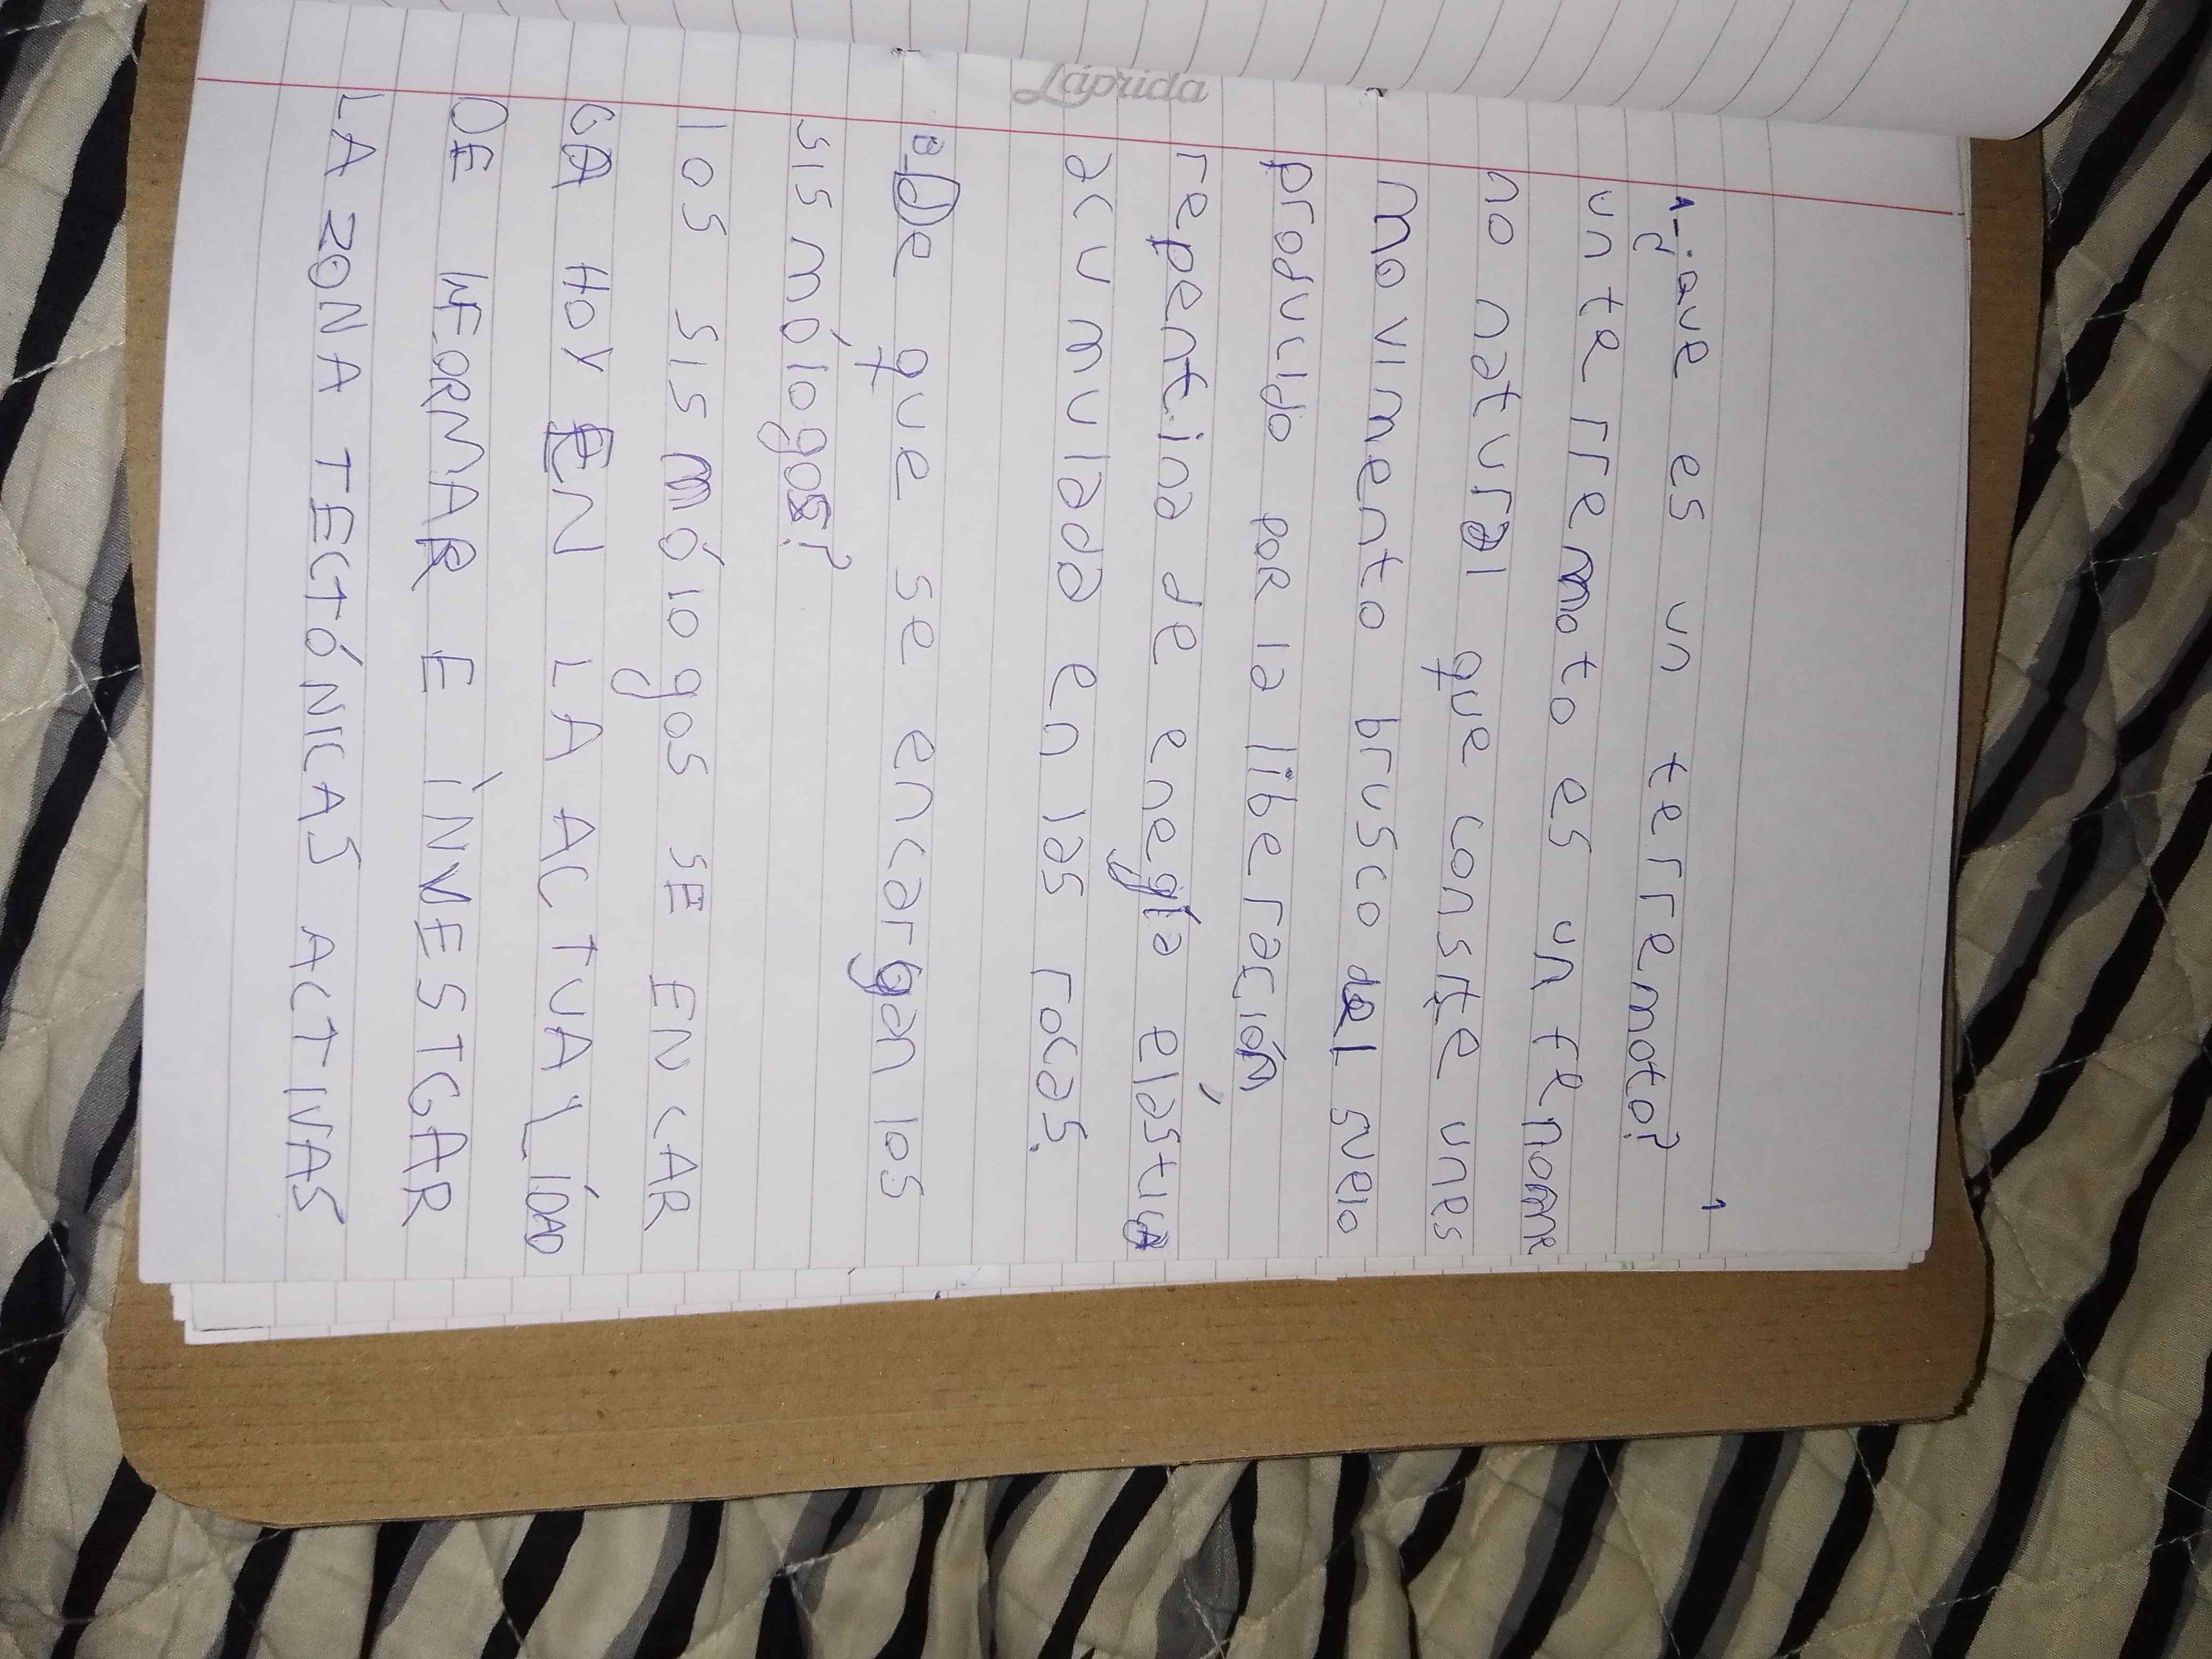 Láprida
1
A-¿que es un terremoto?
un terremoto es un fenome
no natural que consiste unes
movimento brusco del suelo
producido por la liberación
repentina de enegía elástica
acumulada en las rocas.
B-De que se encargan los
sismólogos?
los sismólogos SE ENCAR
GA HOY EN LA ACTUALIDAD
DE INFORMAR E INVESTGAR
LA ZONA TECTÓNICAS ACTIVAS